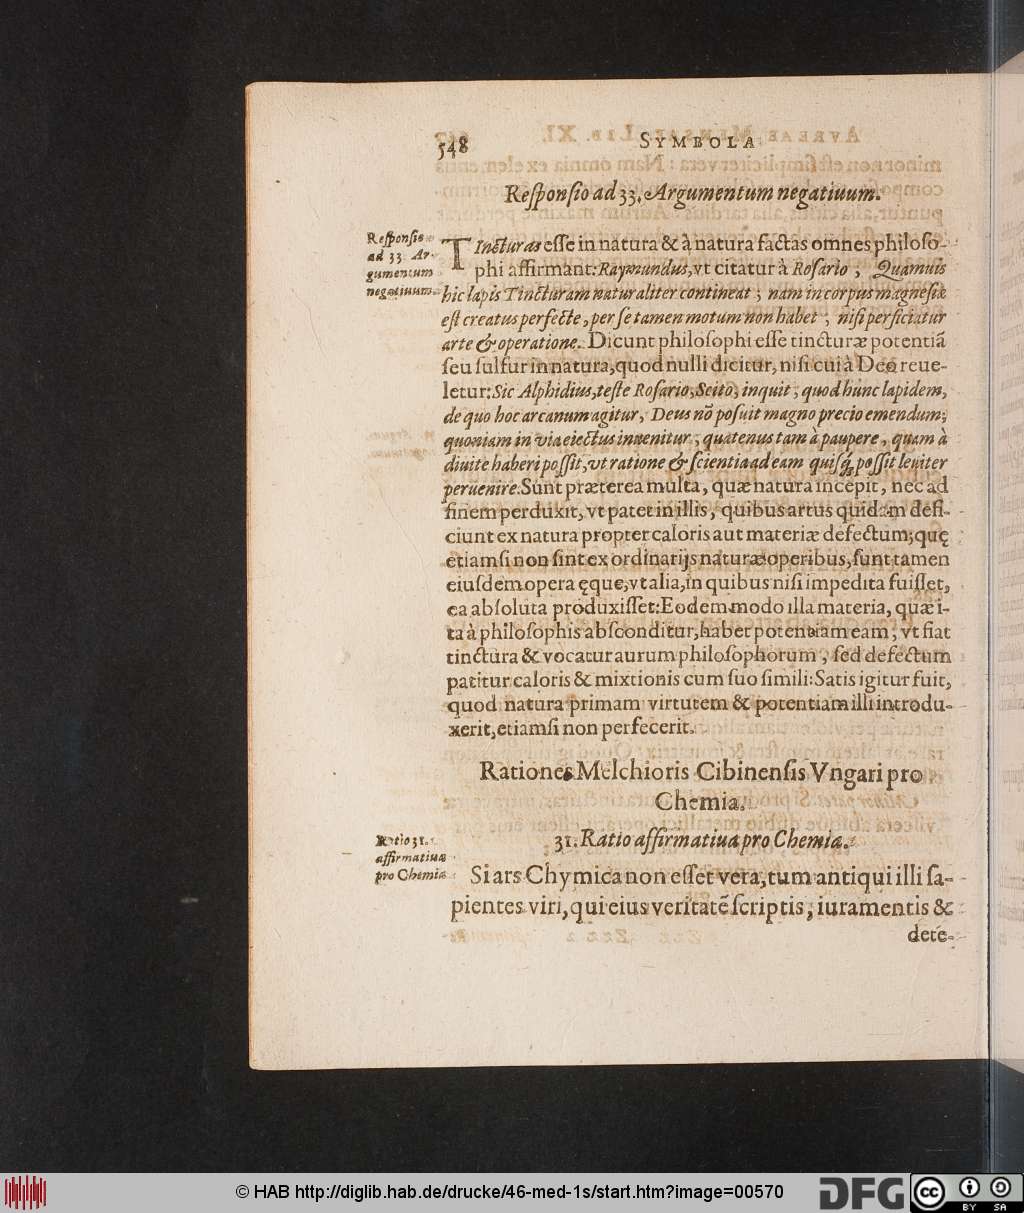 548
SYMBOLA
Responsio ad 33. Argumentum negatiuum.
Responsio
ad 33. Ar-
gumentum
negatiuum.
TIncturas esse in natura & à natura factas omnes philoso-
phi affirmant: Raymundus, vt citatur à Rosario; Quamuis
hic lapis Tincturam naturaliter contineat; nam in corpus magnesiæ
est creatus perfecte, per se tamen motum non habet; nisi perficiatur
arte & operatione. Dicunt philosophi esse tincturæ potentiã
seu sulfur in natura, quod nulli dicitur, nisi cui à Deo reue-
letur: Sic Alphidius, teste Rosario, Scito, inquit, quod hunc lapidem,
de quo hoc arcanum agitur, Deus nõ posuit magno precio emendum;
quoniam in via eiectus inuenitur, quatenus tam à paupere, quam à
diuite haberi possit, vt ratione & scientia ad eam quisq́; possit leuiter
peruenire. Sunt præterea multa, quæ natura incepit, nec ad
finem perduxit, vt patet in illis, quibus artus quidam defi-
ciunt ex natura propter caloris aut materiæ defectum; quę
etiamsi non sint ex ordinarijs naturæ operibus, sunt tamen
eiusdem opera ęque, vt alia, in quibus nisi impedita fuisset,
ea absoluta produxisset: Eodem modo illa materia, quæ i-
ta à philosophis absconditur, habet potentiam eam, vt fiat
tinctura & vocatur aurum philosophorum, sed defectum
patitur caloris & mixtionis cum suo simili: Satis igitur fuit,
quod natura primam virtutem & potentiam illi introdu-
xerit, etiamsi non perfecerit.
Rationes Melchioris Cibinensis Vngari pro
Chemia.
31. Ratio affirmatiua pro Chemia.
Ratio 31.
affirmatiua
pro Chemia
Si ars Chymica non esset vera, tum antiqui illi sa-
pientes viri, qui eius veritatẽ scriptis, iuramentis &
dete-
© HAB http://diglib.hab.de/drucke/46-med-1s/start.htm?image=00570
DFG
CC BY SA